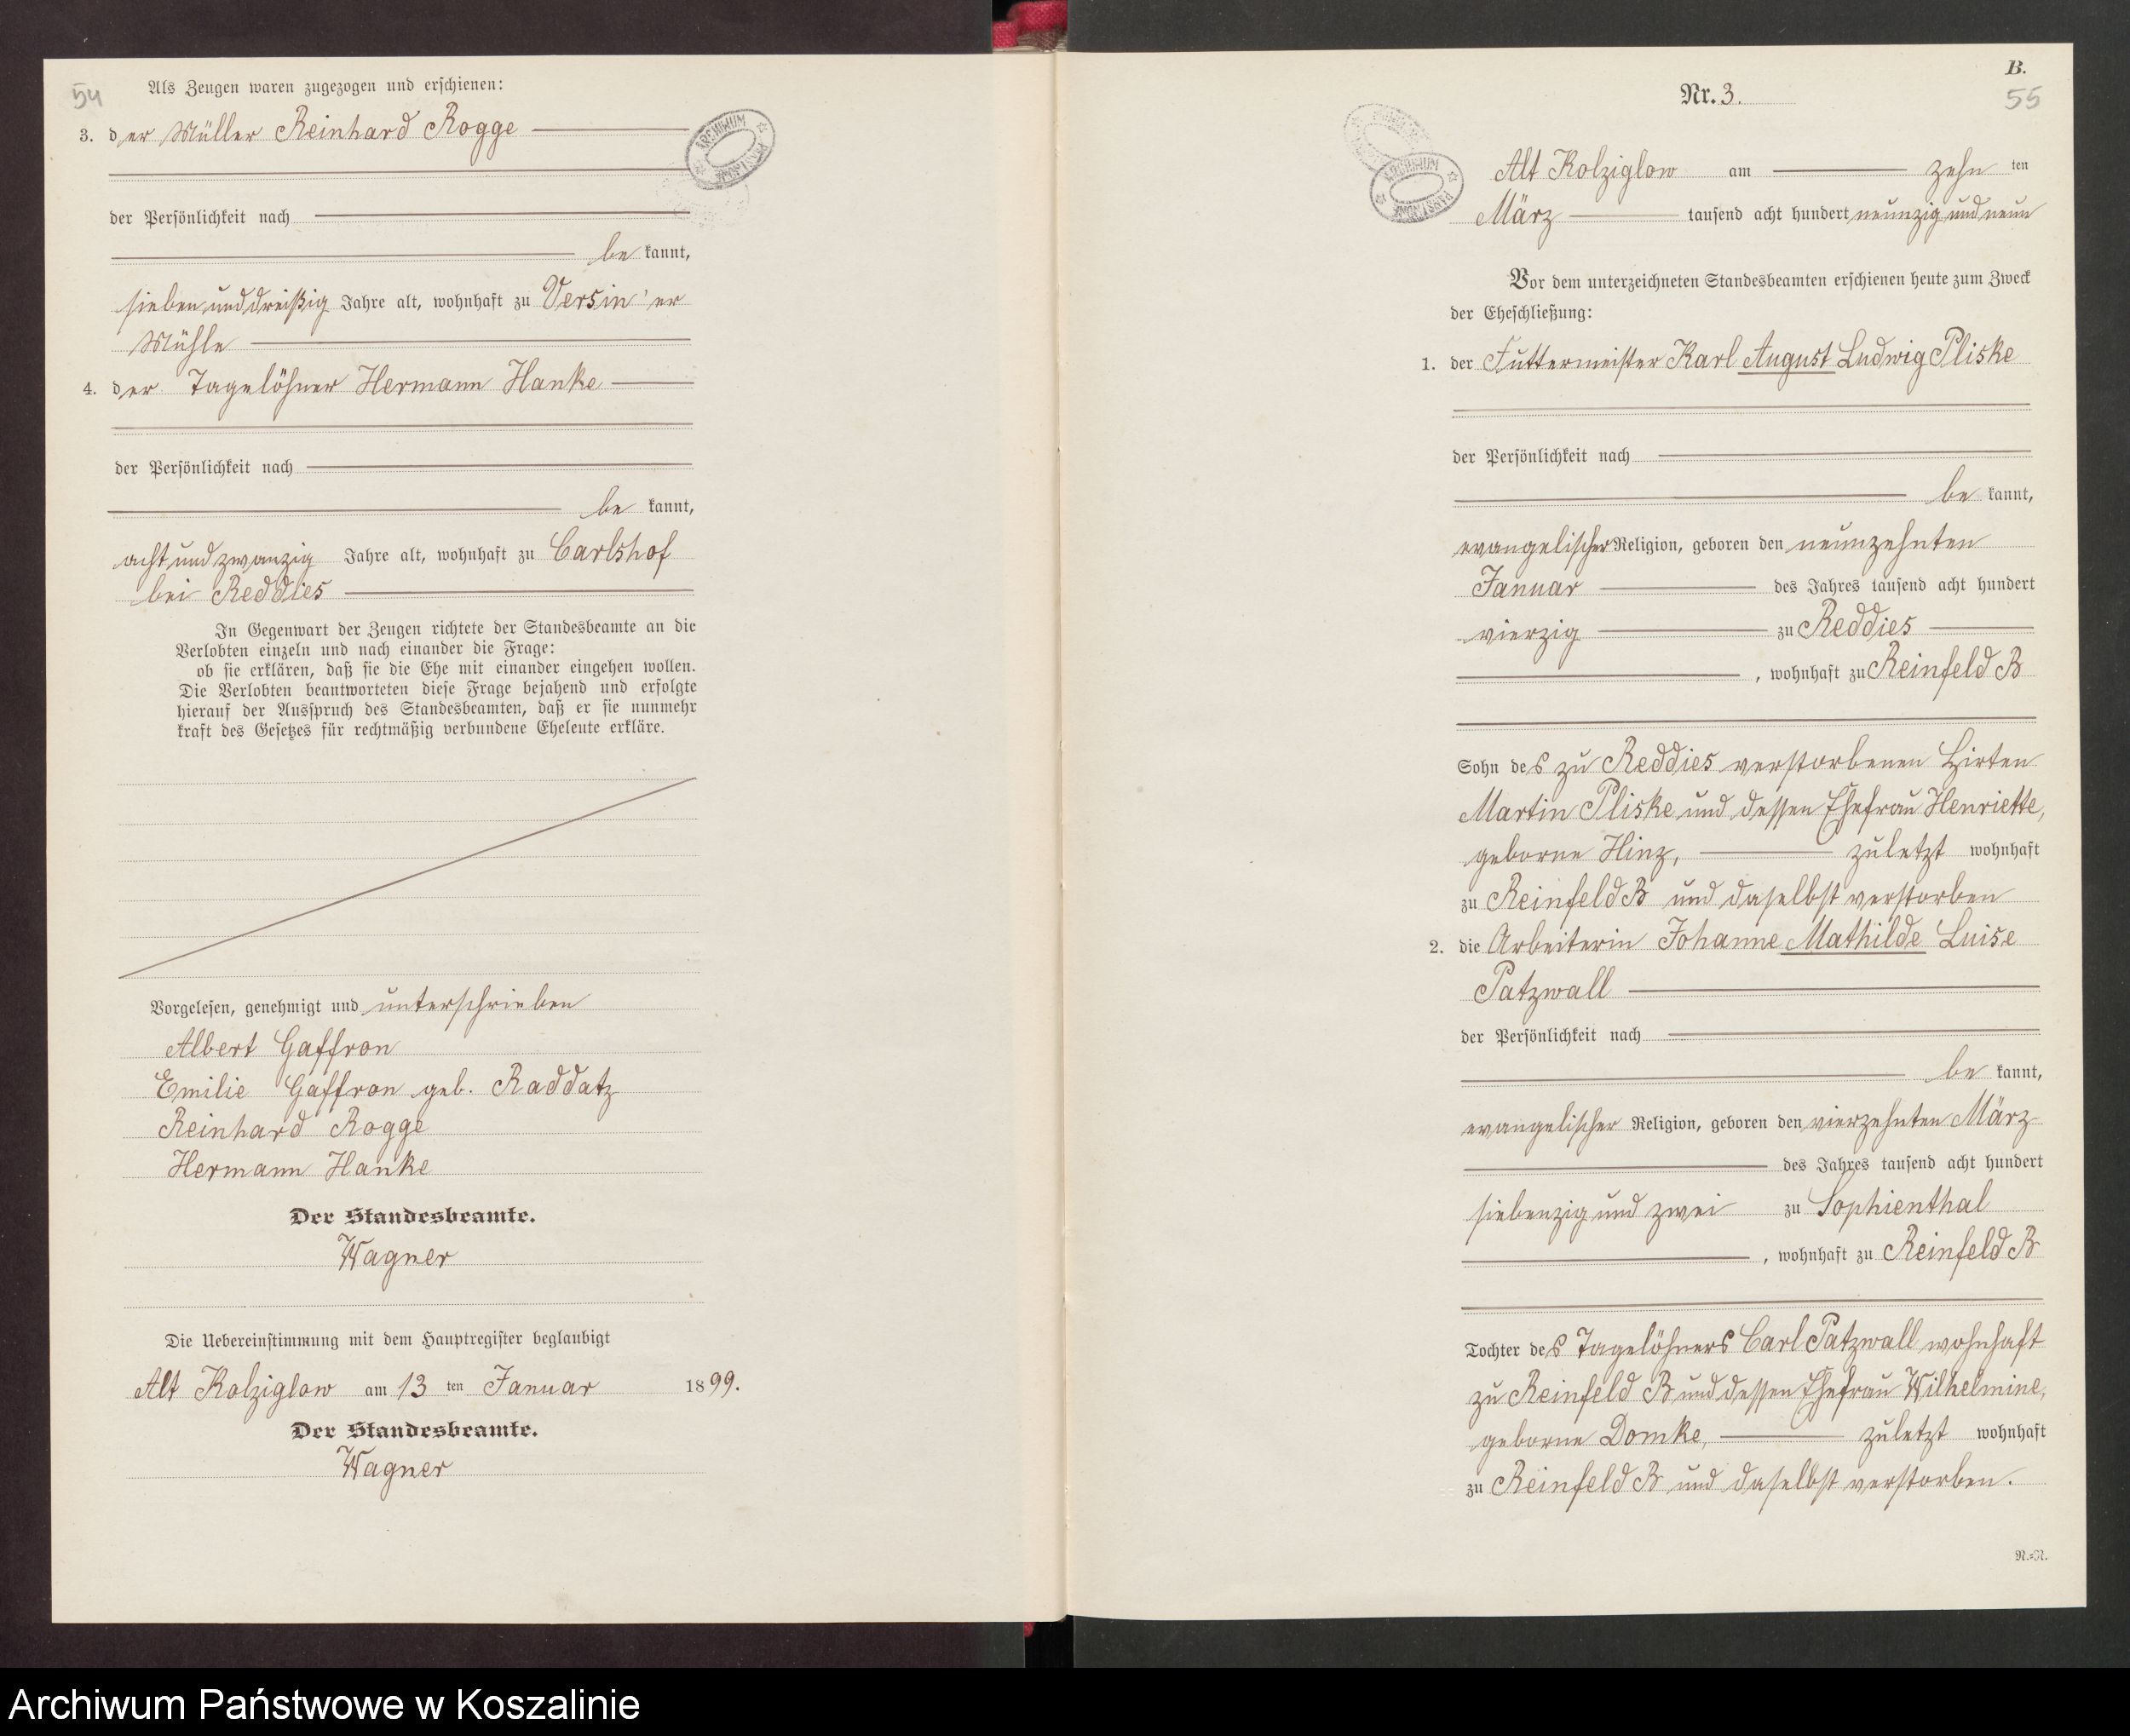 54
Als Zeugen waren zugezogen und erschienen:
3. der Müller Reinhard Rogge
der Persönlichkeit nach
be kannt,
sieben und dreißig Jahre alt, wohnhaft zu Versin'er
Mühle
4. der Tagelöhner Hermann Hanke
der Persönlichkeit nach
be kannt,
acht und zwanzig Jahre alt, wohnhaft zu Carlshof
bei Reddies
In Gegenwart der Zeugen richtete der Standesbeamte an die
Verlobten einzeln und nach einander die Frage:
ob sie erklären, daß sie die Ehe mit einander eingehen wollen.
Die Verlobten beantworteten diese Frage bejahend und erfolgte
hierauf der Ausspruch des Standesbeamten, daß er sie nunmehr
kraft des Gesetzes für rechtmäßig verbundene Eheleute erkläre.
Vorgelesen, genehmigt und unterschrieben
Albert Gaffron
Emilie Gaffron geb. Raddatz
Reinhard Rogge
Hermann Hanke
Der Standesbeamte.
Wagner
Die Uebereinstimmung mit dem Hauptregister beglaubigt
Alt Kolziglow am 13 ten Januar 1899.
Der Standesbeamte.
Wagner
ARCHIWUM PAŃSTWOWE
B.
55
Nr. 3.
ARCHIWUM PAŃSTWOWE
Alt Kolziglow am zehn ten
März tausend acht hundert neunzig und neun
Vor dem unterzeichneten Standesbeamten erschienen heute zum Zweck
der Eheschließung:
1. der Futtermeister Karl August Ludwig Pliske
der Persönlichkeit nach
be kannt,
evangelischer Religion, geboren den neunzehnten
Januar des Jahres tausend acht hundert
vierzig zu Reddies
, wohnhaft zu Reinfeld B
Sohn des zu Reddies verstorbenen Hirten
Martin Pliske und dessen Ehefrau Henriette,
geborne Hinz, zuletzt wohnhaft
zu Reinfeld B und daselbst verstorben
2. die Arbeiterin Johanne Mathilde Luise
Patzwall
der Persönlichkeit nach
be kannt,
evangelischer Religion, geboren den vierzehnten März
des Jahres tausend acht hundert
siebenzig und zwei zu Sophienthal
, wohnhaft zu Reinfeld B
Tochter des Tagelöhners Carl Patzwall wohnhaft
zu Reinfeld B und dessen Ehefrau Wilhelmine,
geborne Domke, zuletzt wohnhaft
zu Reinfeld B und daselbst verstorben.
N.=N.
Archiwum Państwowe w Koszalinie